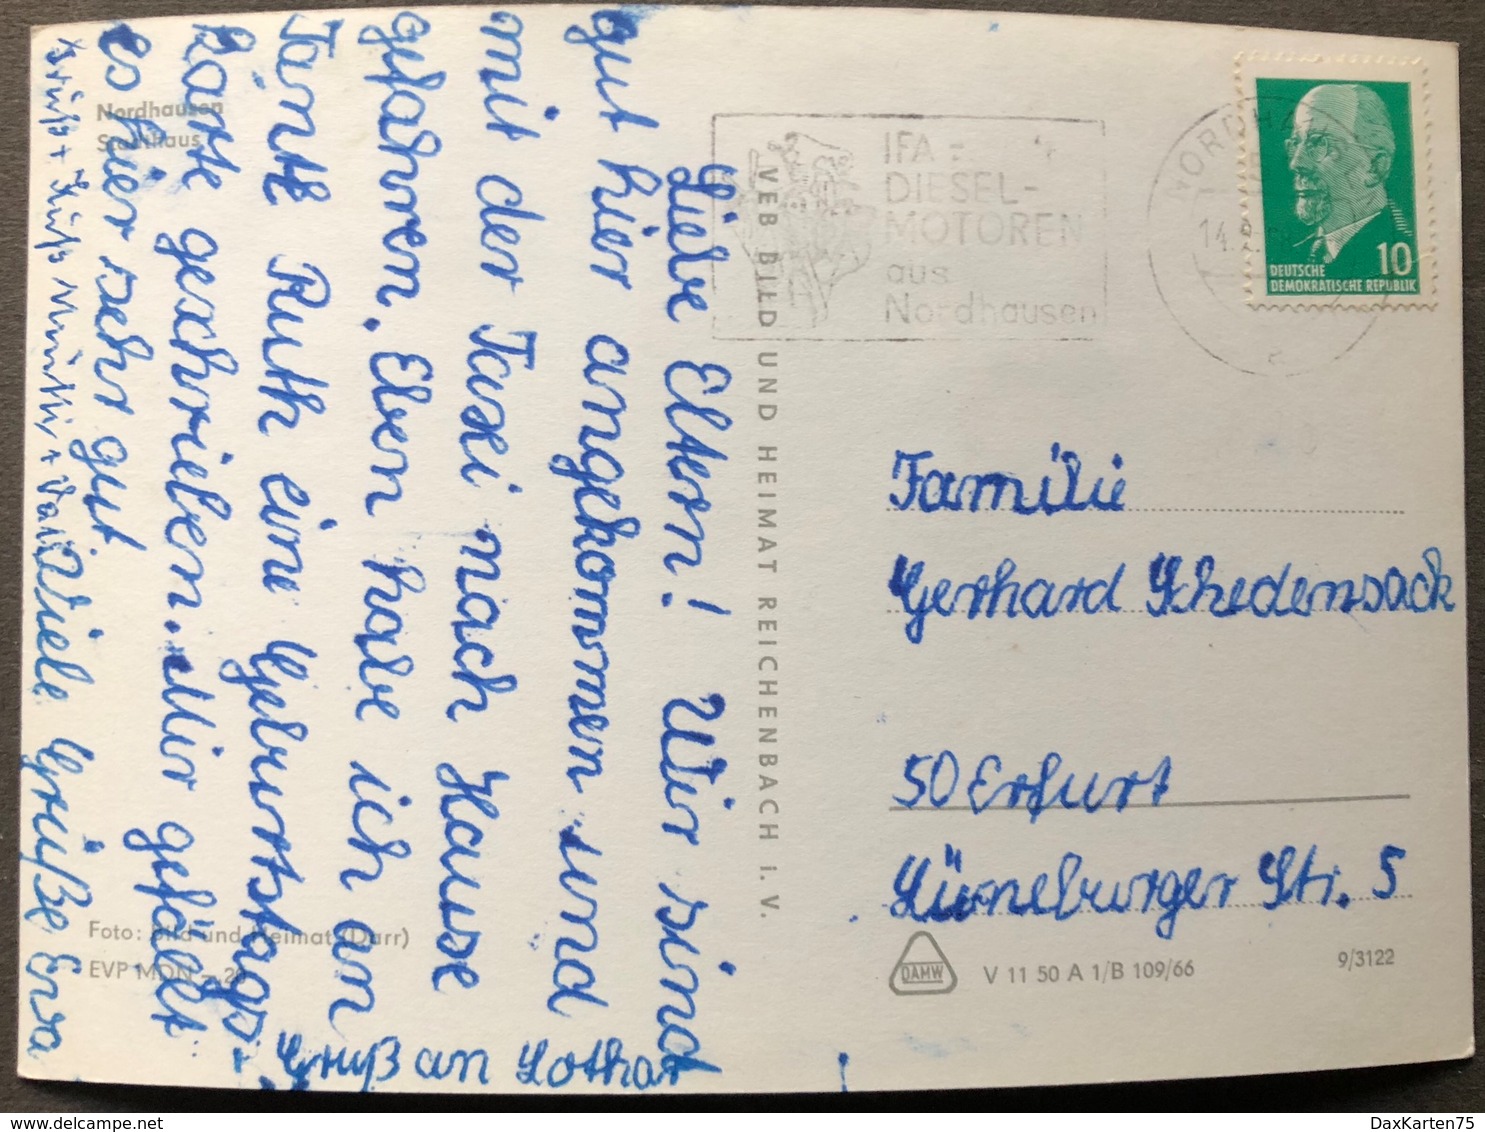 Nordhausen
Stadthaus
Liebe Eltern! Wir sind
gut hier angekommen und
mit der Taxi nach Hause
gefahren. Eben habe ich an
Tante Ruth eine Geburtstags-
karte geschrieben. Mir gefällt
es hier sehr gut.
Viele Grüße Eva
Gruß + Kuß
Gruß an Lothar
!
Foto: Bild und Heimat (Darr)
EVP MDN –.20
VEB BILD UND HEIMAT REICHENBACH I. V.
IFA
DIESEL-
MOTOREN
aus
Nordhausen
NORDHAUSEN
14.
10
DEUTSCHE
DEMOKRATISCHE REPUBLIK
Familie
Gerhard Schedensack
50 Erfurt
Lüneburger Str. 5
DAMW
V 11 50 A 1/B 109/66
9/3122
DaxKarten75